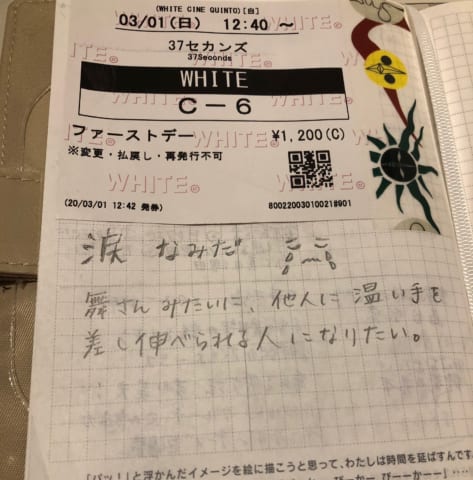 (WHITE CINE QUINTO)[自]
03/01(日) 12:40 ～
37セカンズ
37Seconds
WHITE
C－6
ファーストデー ¥1,200(C)
※変更・払戻し・再発行不可
WHITE®
(20/03/01 12:42 発券) 80022003010021#901
涙 なみだ
舞さんみたいに、他人に温い手を
差し伸べられる人になりたい。
「パッ!」と浮かんだイメージを絵に描こうと思って、わたしは時間を延ばすんです
びーかー びーーかーー」‥‥